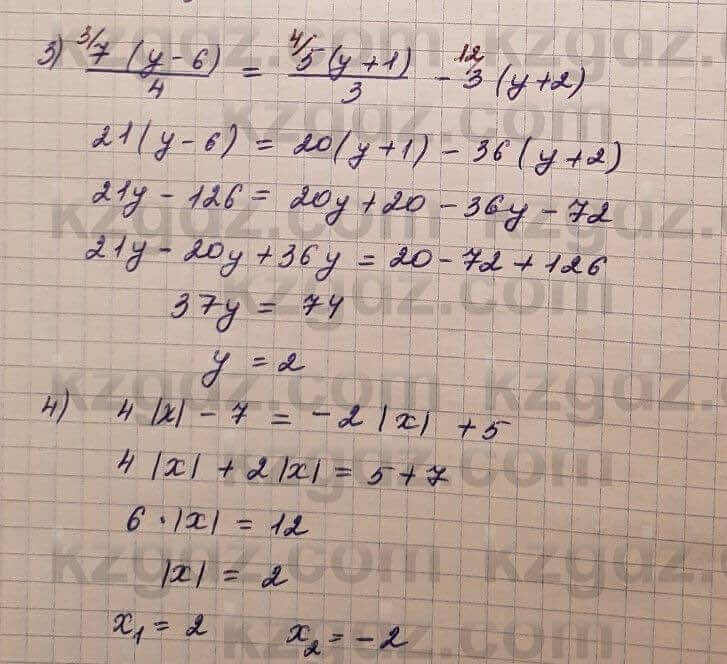 3) ³/7 (y - 6) / 4 = ⁴/5 (y + 1) / 3 - ¹²3 (y + 2)
21 (y - 6) = 20 (y + 1) - 36 (y + 2)
21y - 126 = 20y + 20 - 36y - 72
21y - 20y + 36y = 20 - 72 + 126
37y = 74
y = 2
4) 4 |x| - 7 = -2 |x| + 5
4 |x| + 2 |x| = 5 + 7
6 · |x| = 12
|x| = 2
x₁ = 2 x₂ = -2
kzgdz.com